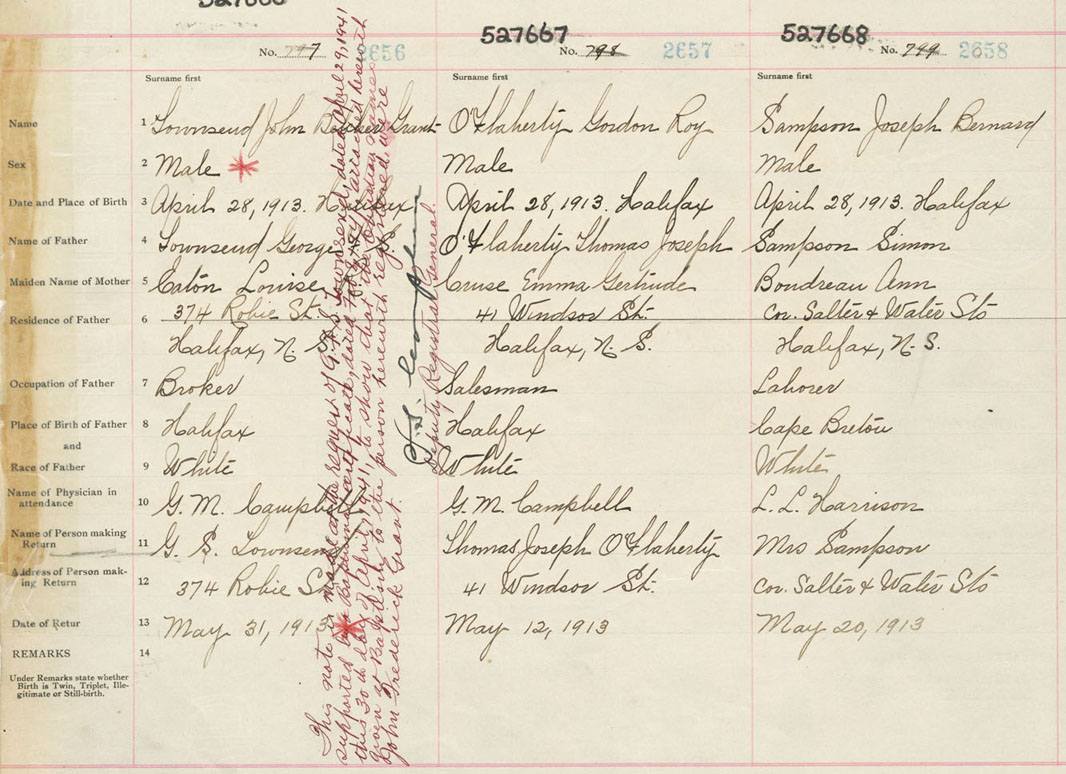 527666
527667
527668
No. 797 2656
No. 798 2657
No. 799 2658
Surname first
Surname first
Surname first
Name 1 Townsend John Grant O'Flaherty Gordon Roy Sampson Joseph Bernard
Sex 2 Male * Male Male
Date and Place of Birth 3 April 28, 1913. Halifax April 28, 1913. Halifax April 28, 1913. Halifax
Name of Father 4 Townsend George S. O'Flaherty Thomas Joseph Sampson Simon
Maiden Name of Mother 5 Eaton Louise Cruse Emma Gertrude Boudreau Ann
Residence of Father 6 374 Robie St. 41 Windsor St. cor. Salter & Water Sts
Halifax, N. S. Halifax, N. S. Halifax, N. S.
Occupation of Father 7 Broker Salesman Laborer
Place of Birth of Father 8 Halifax Halifax Cape Breton
and
Race of Father 9 White White White
Name of Physician in
attendance 10 G. M. Campbell G. M. Campbell L. L. Harrison
Name of Person making
Return 11 G. S. Townsend Thomas Joseph O'Flaherty Mrs Sampson
Address of Person mak-
ing Return 12 374 Robie St. 41 Windsor St. cor. Salter & Water Sts
Date of Retur 13 May 31, 1913 * May 12, 1913 May 20, 1913
REMARKS 14
Under Remarks state whether
Birth is Twin, Triplet, Ille-
gitimate or Still-birth.
This note is made at the request of G. S. Townsend, dated April 29, 1941
supported by a Baptismal certificate, and attached herewith
this 30th day of April, 1941, to show that the Christian names
given at Baptism to the person herewith registered were
John Frederick Grant.
Deputy Registrar General.